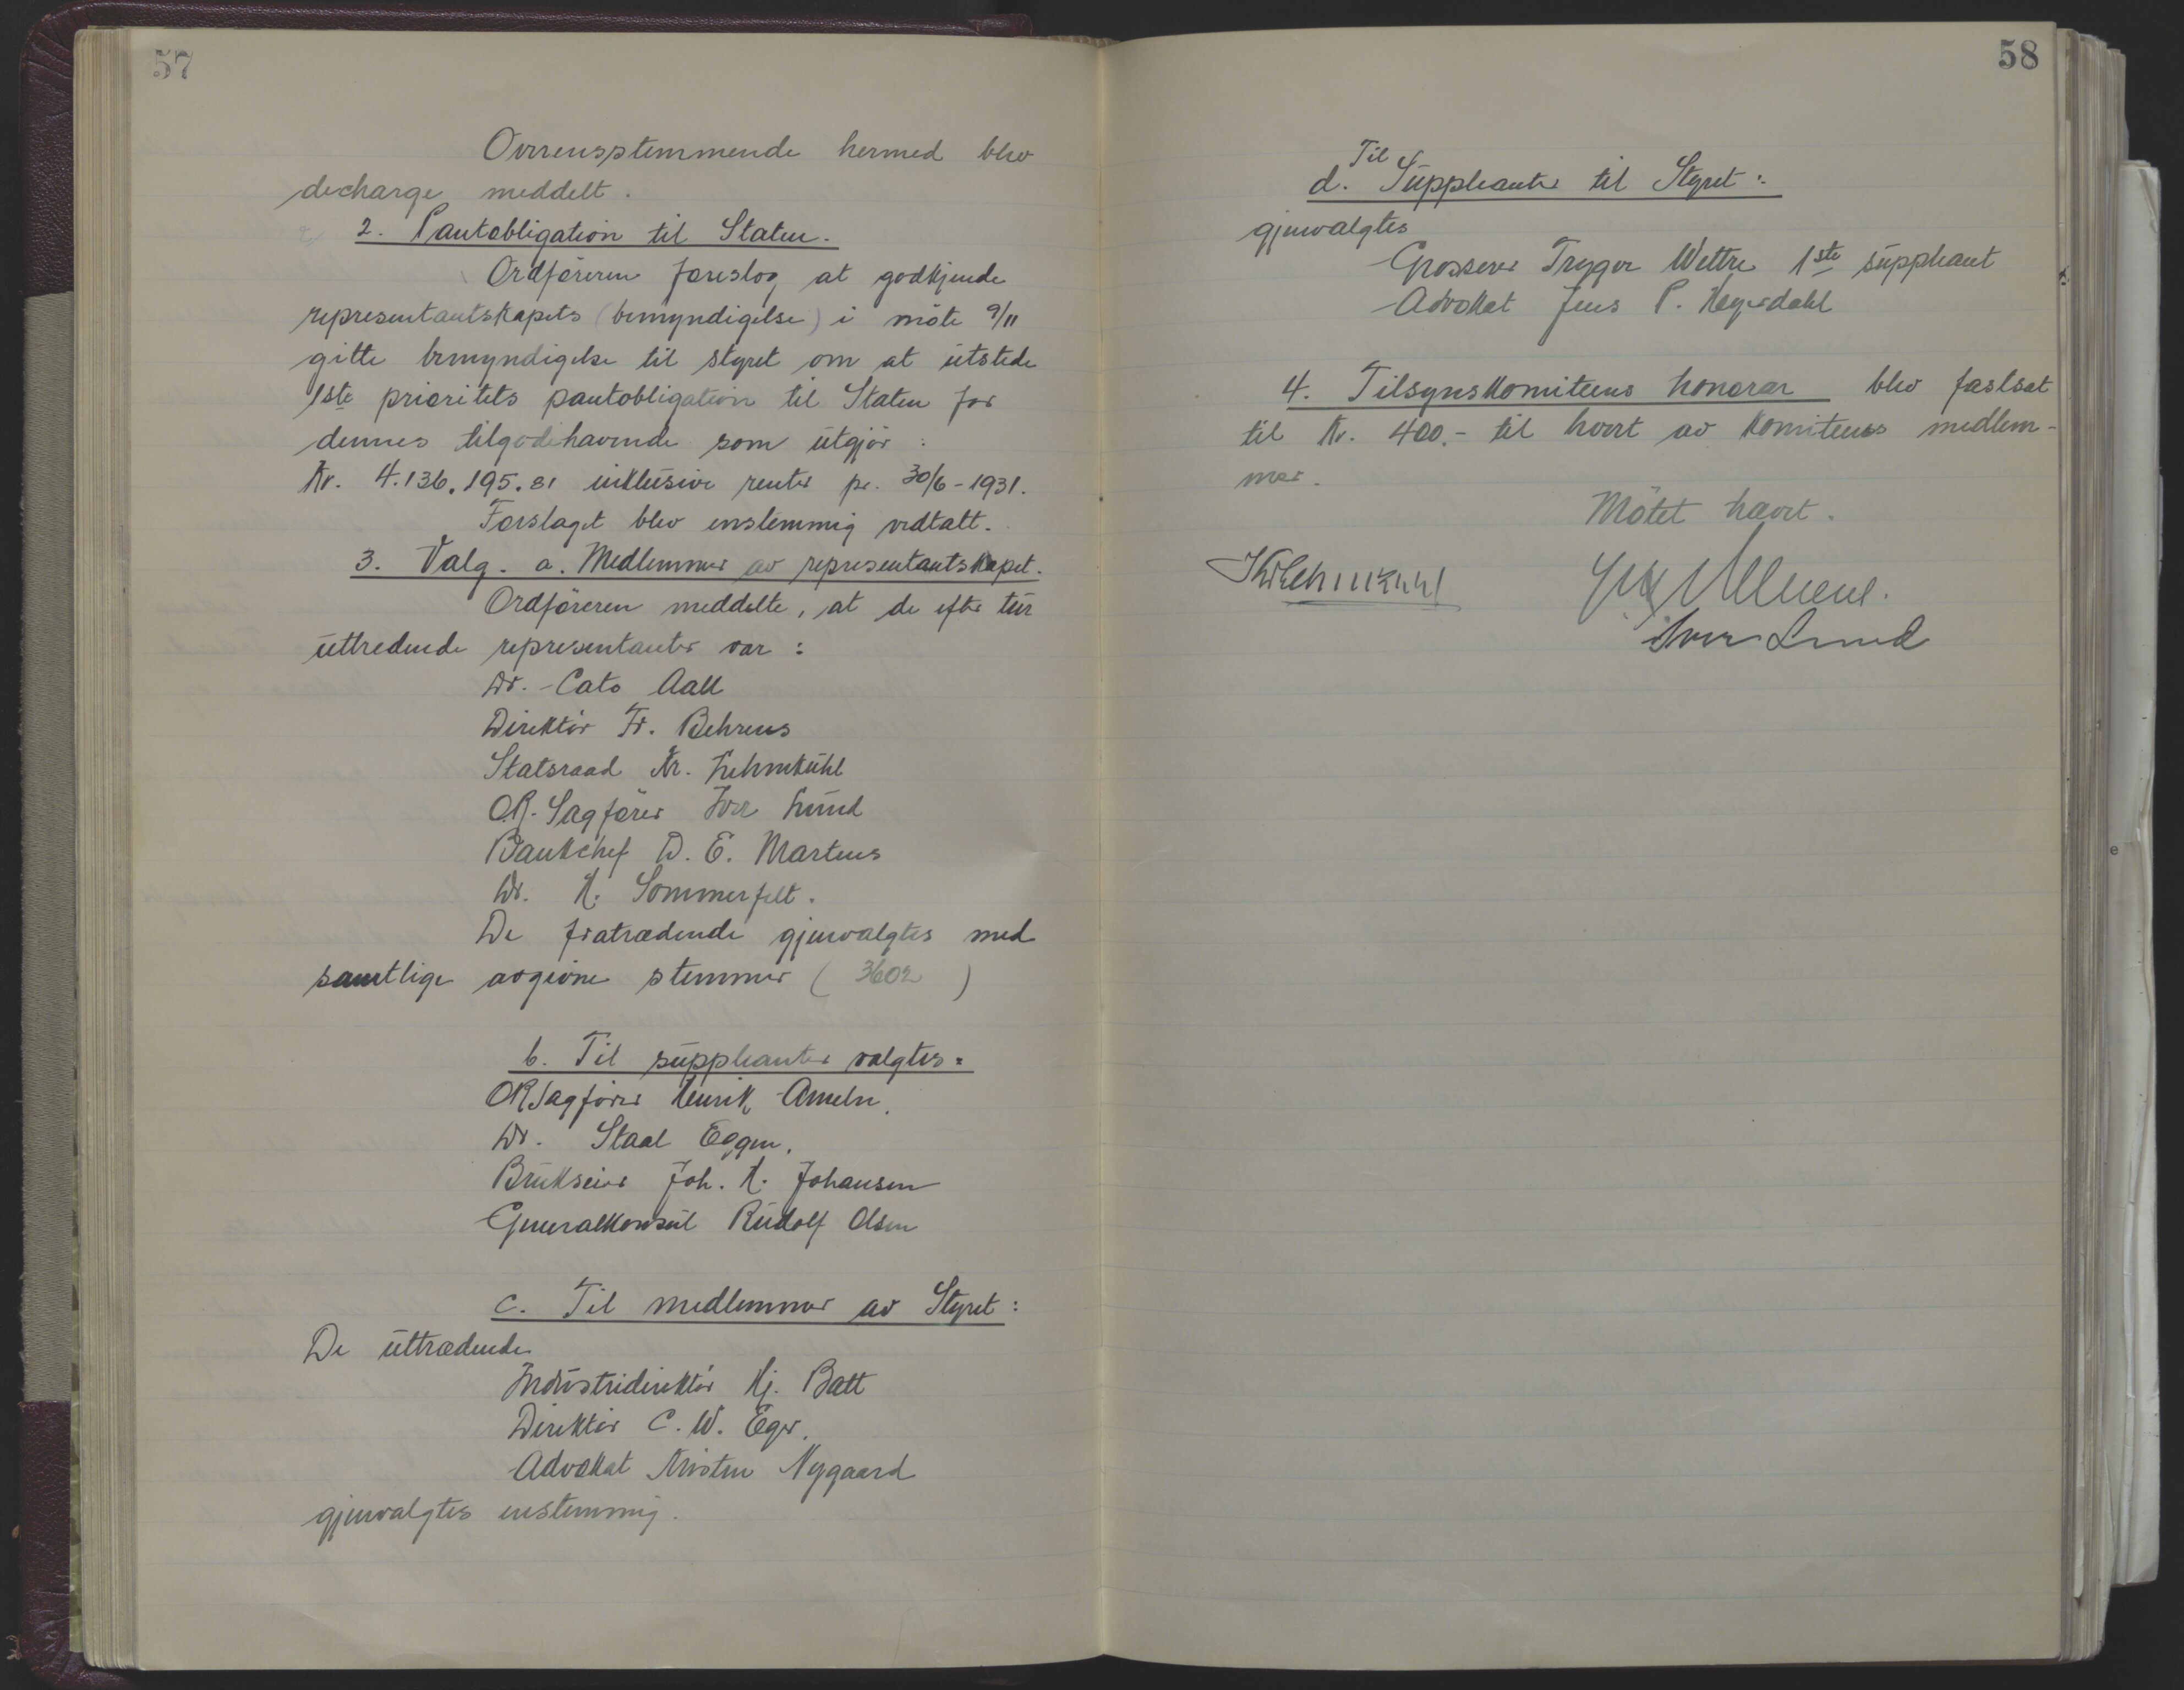 57
Overensstemmende hermed blev
decharge meddelt.
2. Pantobligation til Staten.
Ordföreren foreslog at godkjende
representantskapets (bemyndigelse) i möte 9/11
gitte bemyndigelse til styret om at utstede
1ste prioritets pantobligation til Staten for
dennes tilgodehavende som utgjör :
Kr. 4.136.195.81 inklusive renter pr. 30/6-1931.
Forslaget blev enstemmig vedtatt.
3. Valg. a. Medlemmer av representantskapet.
Ordföreren meddelte, at de efter tur
uttredende representanter var :
Dr. Cato Aall
Direktör Fr. Behrens
Statsraad Kr. Lehmkuhl
O.R. Sagförer Iver Lund
Bankchef D. E. Martens
Dr. H. Sommerfelt.
De fratrædende gjenvalgtes med
samtlige avgivne stemmer ( 3602 )
b. Til suppleanter valgtes:
ORSagförer Henrik Ameln.
Dr. Staal Eggen.
Brukseier Joh. H. Johansen
Generalkonsul Rudolf Olsen
c. Til medlemmer av Styret :
De uttrædende
Industridirektör Hj. Batt
Direktör C. W. Eger.
Advokat Kristen Nygaard
gjenvalgtes enstemmig.
58
Til
d. Suppleanter til Styret :
gjenvalgtes
Grosserer Trygve Wettre 1ste suppleant
Advokat Jens P. Heyerdahl
4. Tilsynskomiteens honorar blev fastsat
til Kr. 400.- til hvert av komiteens medlem-
mer.
Mötet hævet.
Kr Lehmkuhl
Iver Lund